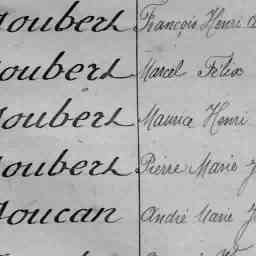 Joubert François Henri
Joubert Marcel Félix
Joubert Maurice Henri
Joubert Pierre Marie J
Joucan André Marie J